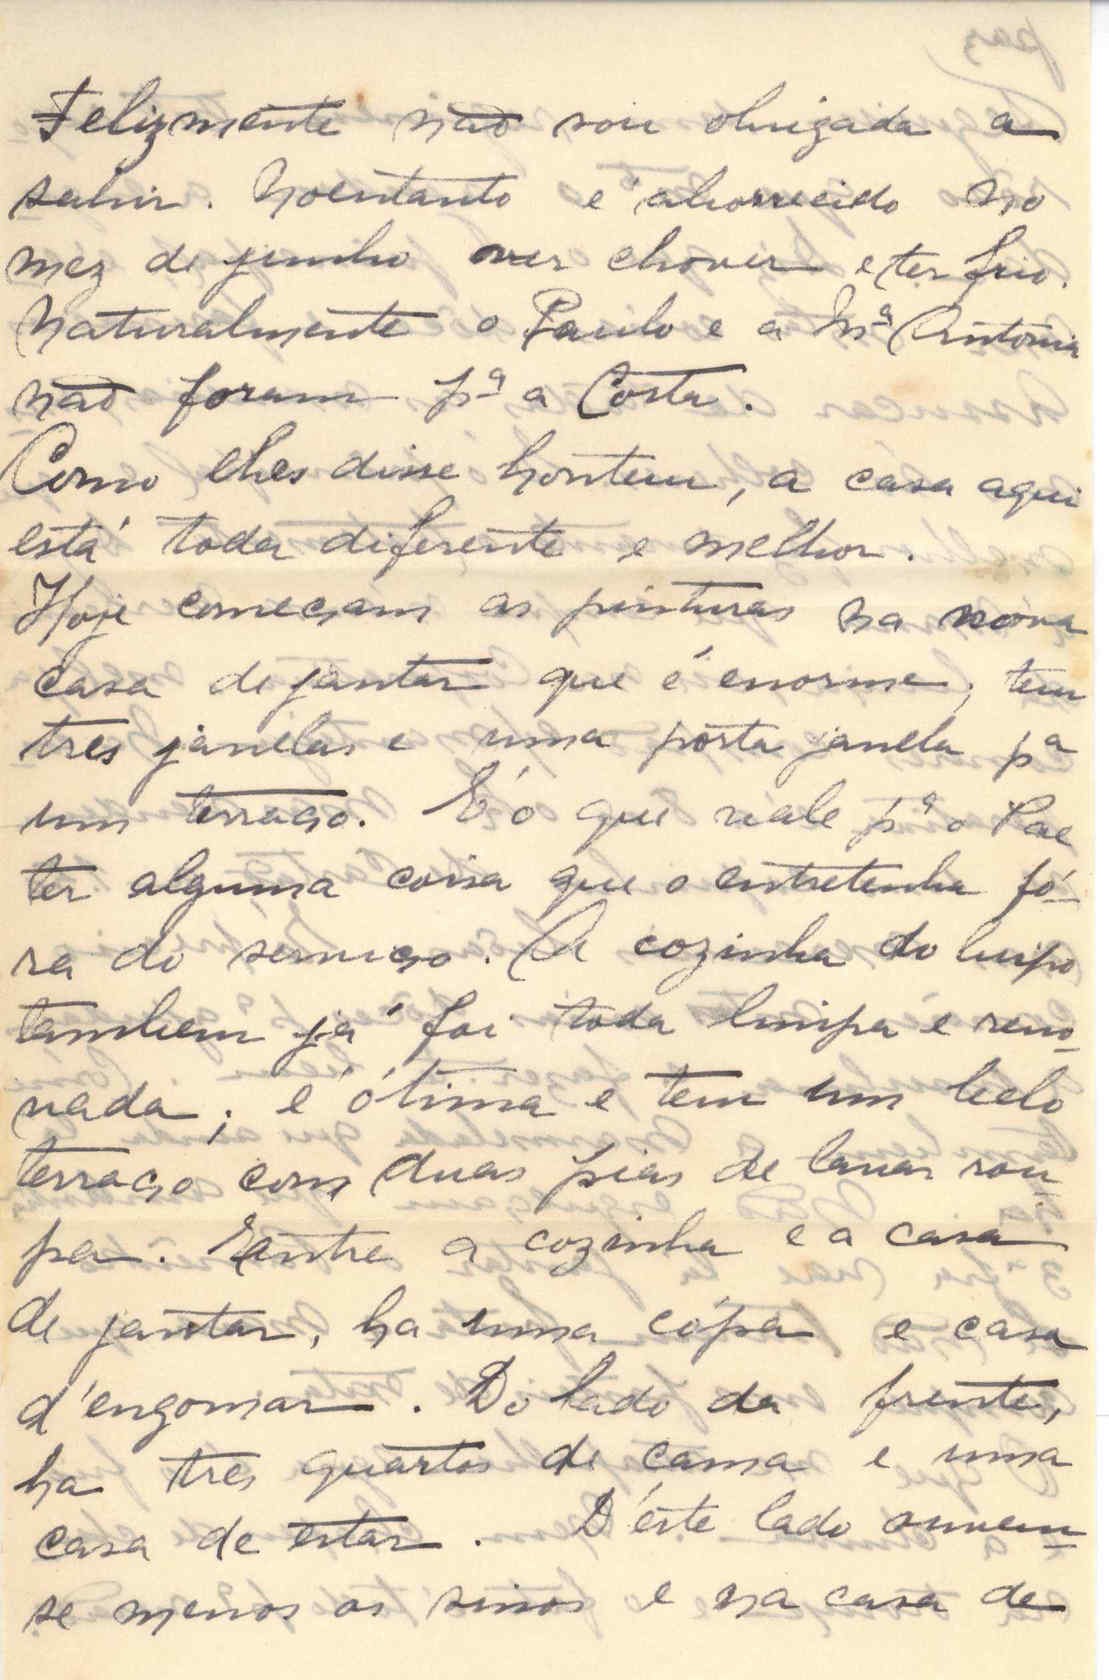 Felizmente não sou obrigada a
sahir. Noentanto é aborrecido no
mez de junho ver chover e ter frio.
Naturalmente o Paulo e a Mª Antonia
não foram pª a Costa.
Como lhes disse hontem, a casa aqui
está toda diferente e melhor.
Hoje começam as pinturas na nova
casa de jantar que é enorme, tem
tres janelas e uma porta janela pª
um terraço. É o que vale pª o Pae
ter alguma coisa que o entretenha fó-
ra do serviço. A cozinha do
tambem já foi toda limpa e reno-
vada; é ótima e tem um belo
terraço com duas pias de lavar rou
pa. Entre a cozinha e a casa
de jantar, ha uma cópa e casa
d'engomar. Do lado da frente,
ha tres quartos de cama e uma
casa de estar. D'éste lado ouvem-
se menos os sinos e na casa de